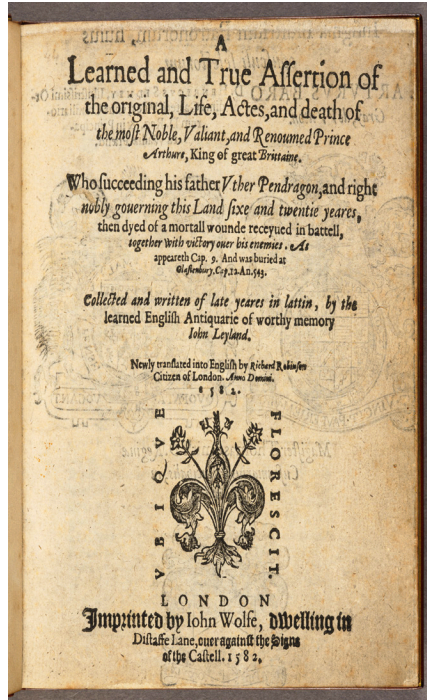 A
Learned and True Aſſertion of
the original, Life, Actes, and death of
the moſt Noble, Valiant, and Renoumed Prince
Arthure, King of great Brittaine.
Who ſucceeding his father Vther Pendragon, and right
nobly gouerning this Land ſixe and twentie yeares,
then dyed of a mortall wounde receyued in battell,
together with victory ouer his enemies. As
appeareth Cap. 9. And was buried at
Glaſtenbury. Cap. 12. An. 543.
Collected and written of late yeares in lattin, by the
learned Engliſh Antiquarie of worthy memory
Iohn Leyland.
Newly tranſlated into Engliſh by Richard Robinſon
Citizen of London. Anno Domini.
1582.
VBIQVE
FLORESCIT.
LONDON
Imprinted by Iohn Wolfe, dwelling in
Diſtaffe Lane, ouer againſt the Signe
of the Caſtell. 1582.